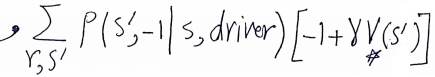 , \sum_{r,s'} P(s',-1|s,driver)[-1+γV_*(s')]